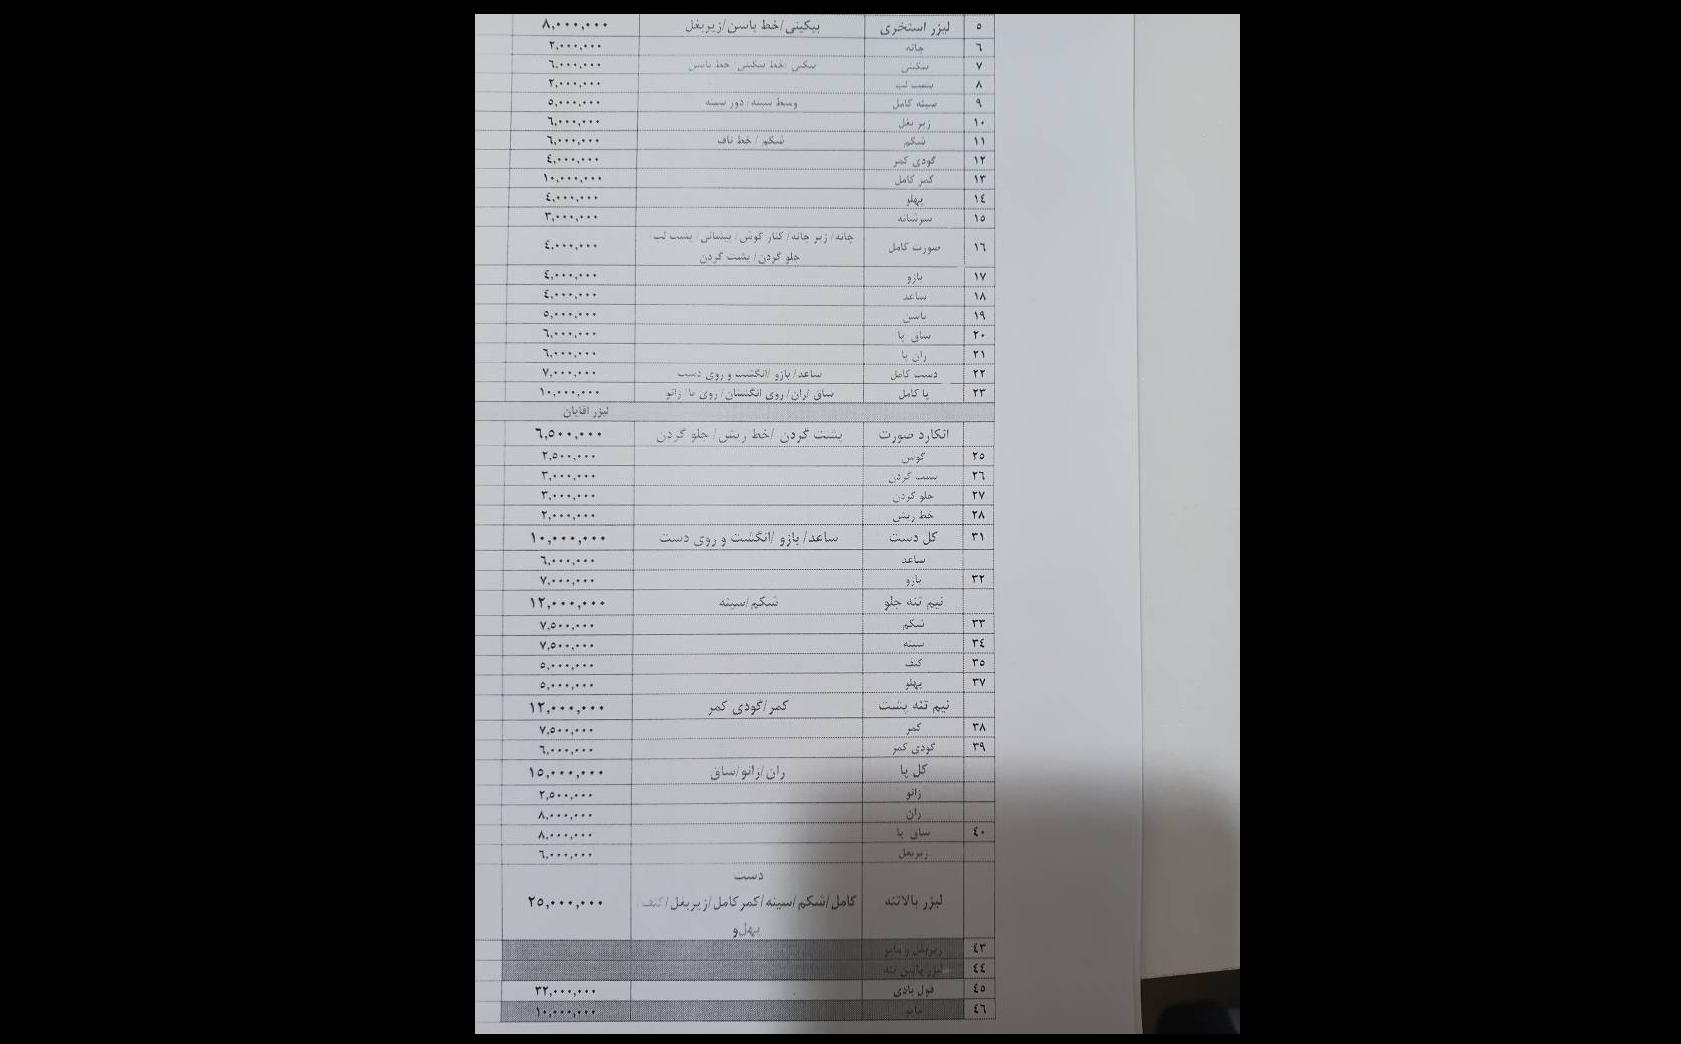 ٥ لیزر استخری بیکینی/خط باسن/زیربغل ۸,۰۰۰,۰۰۰
٦ چانه ۲,۰۰۰,۰۰۰
۷ بیکینی بیکنی/خط بیکینی/خط باسن ٦,۰۰۰,۰۰۰
۸ پشت لب ۲,۰۰۰,۰۰۰
۹ سینه کامل وسط سینه/دور سینه ٥,۰۰۰,۰۰۰
۱۰ زیر بغل ٦,۰۰۰,۰۰۰
۱۱ شکم شکم / خط ناف ٦,۰۰۰,۰۰۰
۱۲ گودی کمر ٤,۰۰۰,۰۰۰
۱۳ کمر کامل ۱۰,۰۰۰,۰۰۰
۱٤ پهلو ٤,۰۰۰,۰۰۰
۱٥ سرشانه ۳,۰۰۰,۰۰۰
۱٦ صورت کامل چانه/ زیر چانه/ کنار گوش/ پیشانی/ پشت لب/ ٤,۰۰۰,۰۰۰
جلو گردن/ پشت گردن
۱۷ بازو ٤,۰۰۰,۰۰۰
۱۸ ساعد ٤,۰۰۰,۰۰۰
۱۹ باسن ٥,۰۰۰,۰۰۰
۲۰ ساق پا ٦,۰۰۰,۰۰۰
۲۱ ران پا ٦,۰۰۰,۰۰۰
۲۲ دست کامل ساعد/ بازو /انگشت و روی دست ۷,۰۰۰,۰۰۰
۲۳ پا کامل ساق /ران/ روی انگشتان/ روی پا/ زانو ۱۰,۰۰۰,۰۰۰
لیزر اقایان
انکارد صورت پشت گردن /خط ریش/ جلو گردن ٦,٥۰۰,۰۰۰
۲٥ گوش ۲,٥۰۰,۰۰۰
۲٦ پشت گردن ۳,۰۰۰,۰۰۰
۲۷ جلو گردن ۳,۰۰۰,۰۰۰
۲۸ خط ریش ۲,۰۰۰,۰۰۰
۳۱ کل دست ساعد/ بازو /انگشت و روی دست ۱۰,۰۰۰,۰۰۰
ساعد ٦,۰۰۰,۰۰۰
۳۲ بازو ۷,۰۰۰,۰۰۰
نیم تنه جلو شکم/سینه ۱۲,۰۰۰,۰۰۰
۳۳ شکم ۷,٥۰۰,۰۰۰
۳٤ سینه ۷,٥۰۰,۰۰۰
۳٥ کتف ٥,۰۰۰,۰۰۰
۳۷ پهلو ٥,۰۰۰,۰۰۰
نیم تنه پشت کمر/گودی کمر ۱۲,۰۰۰,۰۰۰
۳۸ کمر ۷,٥۰۰,۰۰۰
۳۹ گودی کمر ٦,۰۰۰,۰۰۰
کل پا ران/زانو/ساق ۱٥,۰۰۰,۰۰۰
زانو ۲,٥۰۰,۰۰۰
ران ۸,۰۰۰,۰۰۰
٤۰ ساق پا ۸,۰۰۰,۰۰۰
زیربغل ٦,۰۰۰,۰۰۰
دست
لیزر بالاتنه کامل/شکم/سینه/کمرکامل/زیربغل/کتف/ ۲٥,۰۰۰,۰۰۰
پهلو
٤۳ زیربغل و مایو
٤٤ لیزر پایین تنه
٤٥ فول بادی ۳۲,۰۰۰,۰۰۰
٤٦ مایو ۱۰,۰۰۰,۰۰۰